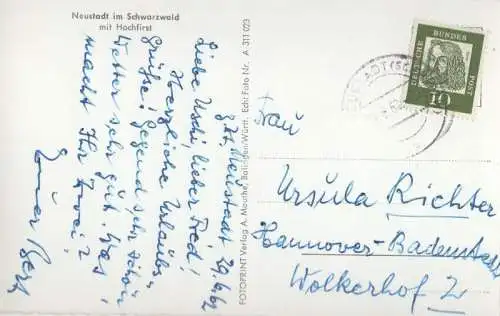 Neustadt im Schwarzwald
mit Hochfirst
z.Zt. Neustadt 29.6.62
Liebe Uschi, lieber Fred!
Herzliche Urlaubs-
grüße! Gegend sehr schön
Wetter sehr gut. Was
macht Ihr zwei?
Euer Bert
FOTOPRINT Verlag A. Mauthe, Balingen/Württ. Echt Foto Nr. A 311 023
DEUTSCHE BUNDESPOST
10
Frau
Ursula Richter
Hannover-Badenstedt
Wolkerhof 2